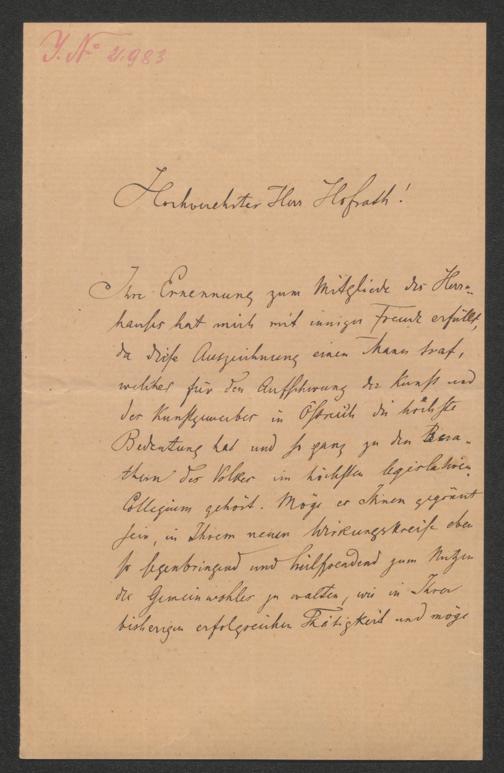 J. Nº 21.983
Hochverehrter Herr Hofrath!
Ihre Ernennung zum Mitgliede des Herren-
hauses hat mich mit inniger Freude erfüllt,
da diese Auszeichnung einen Mann traf,
welcher für den Aufschwung der Kunst und
des Kunstgewerbes in Östreich die höchste
Bedeutung hat und so ganz zu den Bera-
thern der Völker im höchsten legislativen
Collegium gehört. Möge es Ihnen gegönnt
sein, in Ihrem neuen Wirkungskreise eben
so segenbringend und heilspendend zum Nutzen
des Gemeinwohles zu walten, wie in Ihrer
bisherigen erfolgreichen Thätigkeit und möge